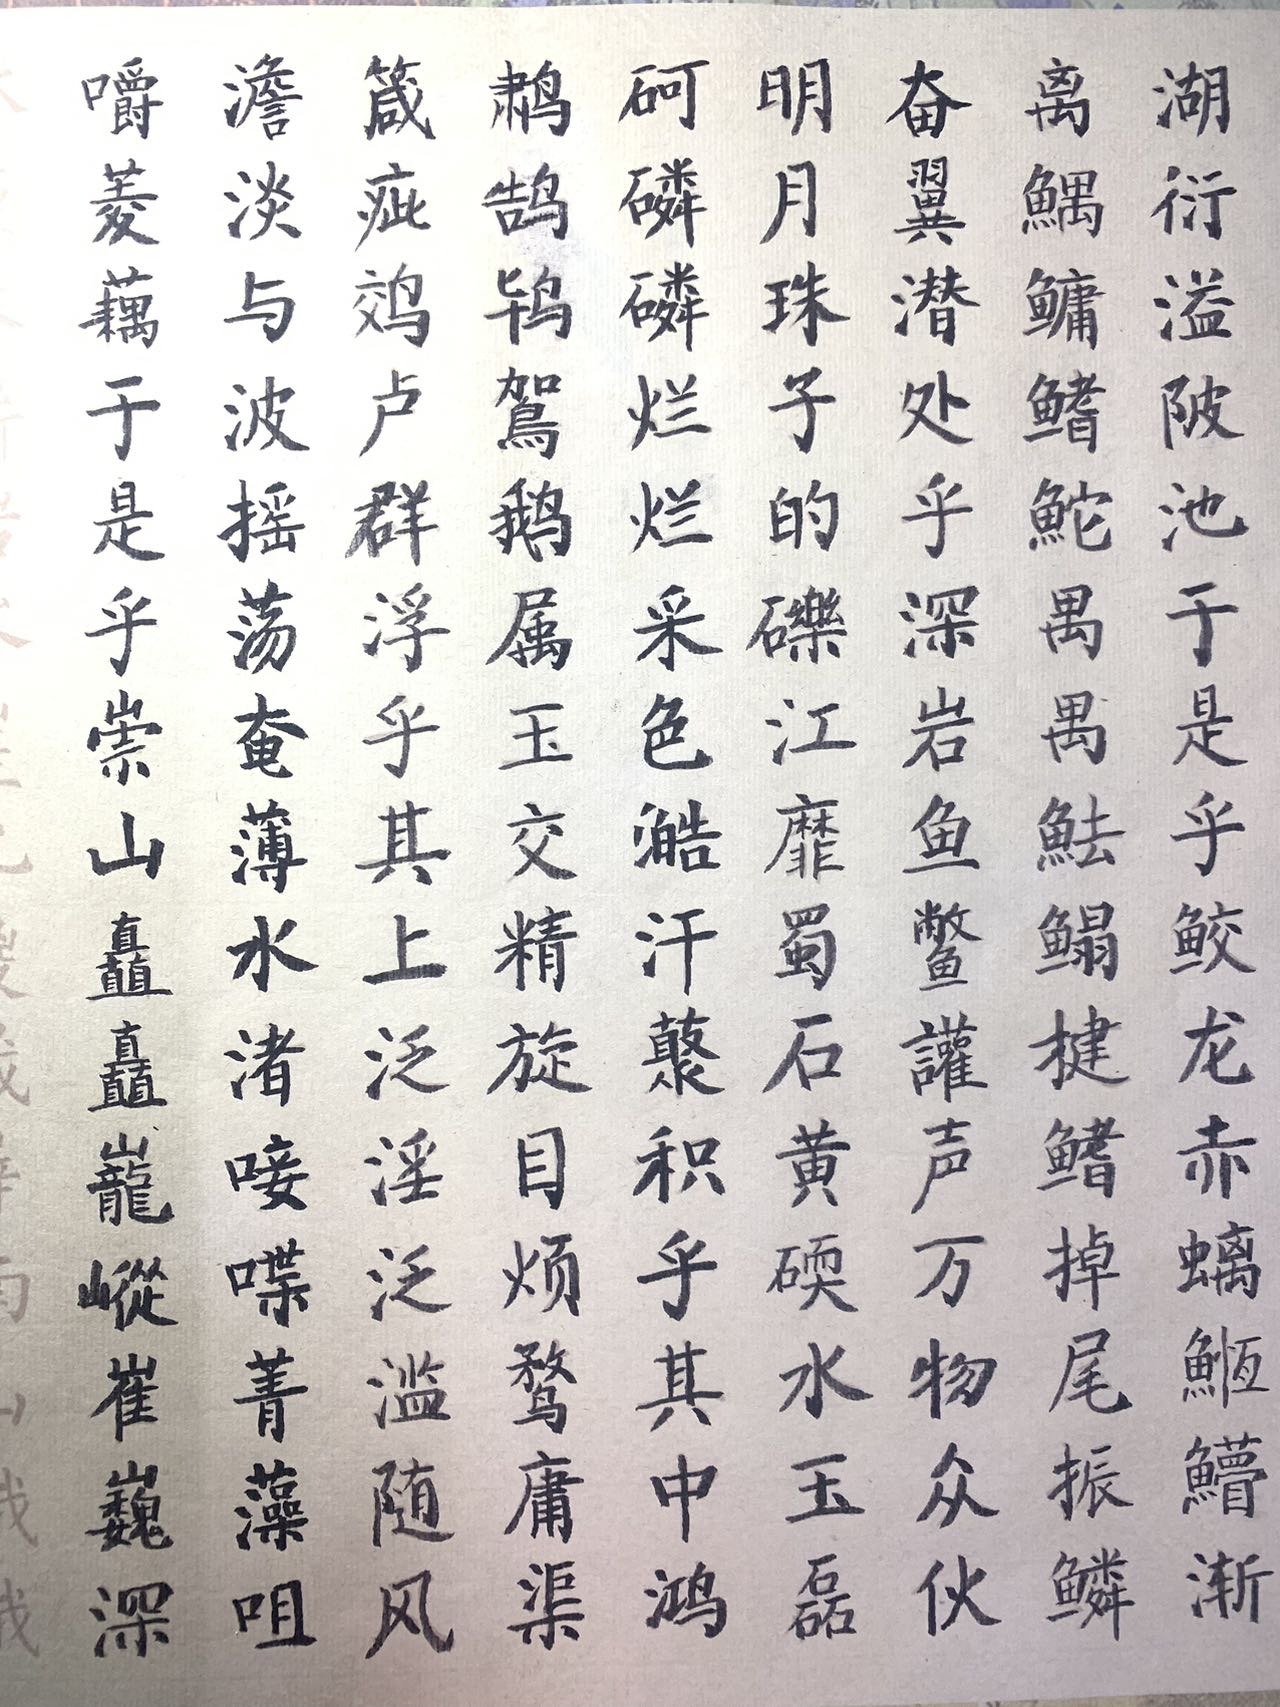 湖衍溢陂池于是乎鲛龙赤螭䱍䲛渐
离鰅鳙鳍鮀禺禺魼鳎揵鳍掉尾振鳞
奋翼潜处乎深岩鱼鳖讙声万物众伙
明月珠子的礫江靡蜀石黄碝水玉磊
砢磷磷烂烂采色澔汗藂积乎其中鸿
鹔鹄鸨鴐鹅属玉交精旋目烦鹜庸渠
箴疵䴔卢群浮乎其上泛淫泛滥随风
澹淡与波摇荡奄薄水渚唼喋菁藻咀
嚼菱藕于是乎崇山矗矗巃嵷崔巍深